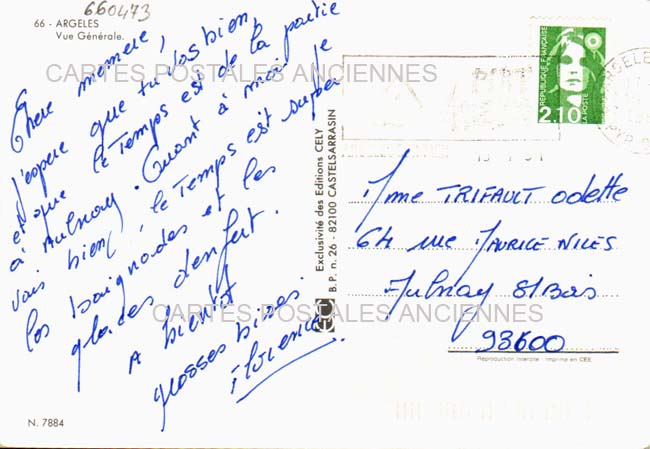 660473
66 - ARGELES
Vue Générale.
Chere mémère,
J'espere que tu vas bien
et que le Temps est de la partie
à Aulnay. Quant à moi je
vais bien, le Temps est super
les baignades et les
glaces d'enfert.
A bientôt
grosses bises.
Florence
N. 7884
Exclusivité des Editions CELY
B.P. n. 26 - 82100 CASTELSARRASIN
REPUBLIQUE FRANÇAISE
2,10
LA POSTE
Mme TRIFAULT Odette
64 rue MAURICE NILES
Aulnay S/Bois
93600
Reproduction interdite - Imprimé en CEE
CARTES POSTALES ANCIENNES
CARTES POSTALES ANCIENNES